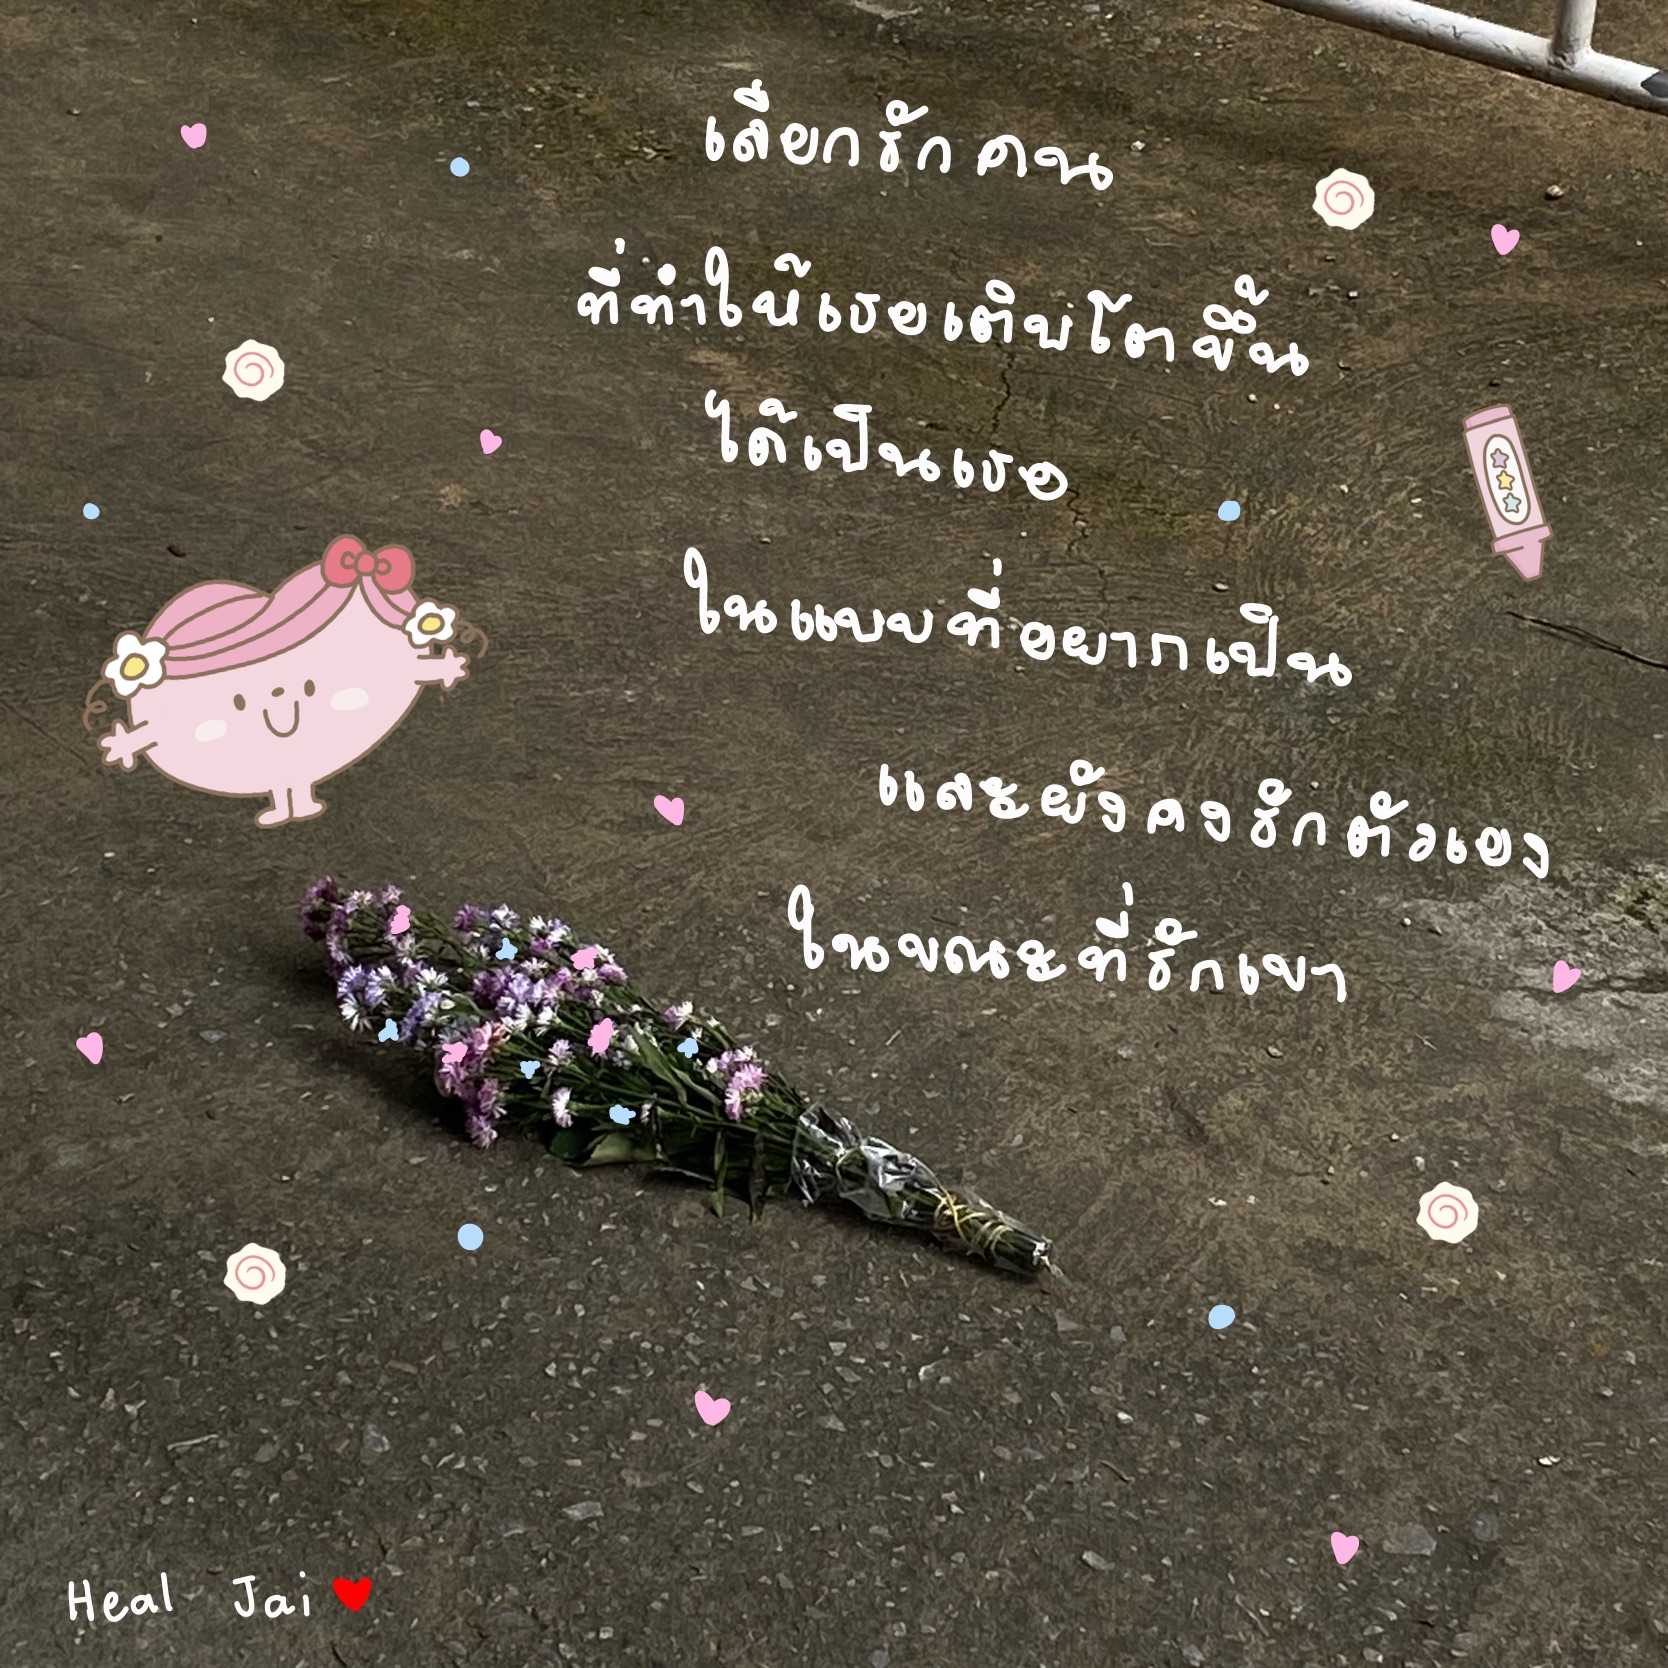 เลือกรักคน
ที่ทำให้เธอเติบโตขึ้น
ได้เป็นเธอ
ในแบบที่อยากเป็น
และยังคงรักตัวเอง
ในขณะที่รักเขา
Heal Jai